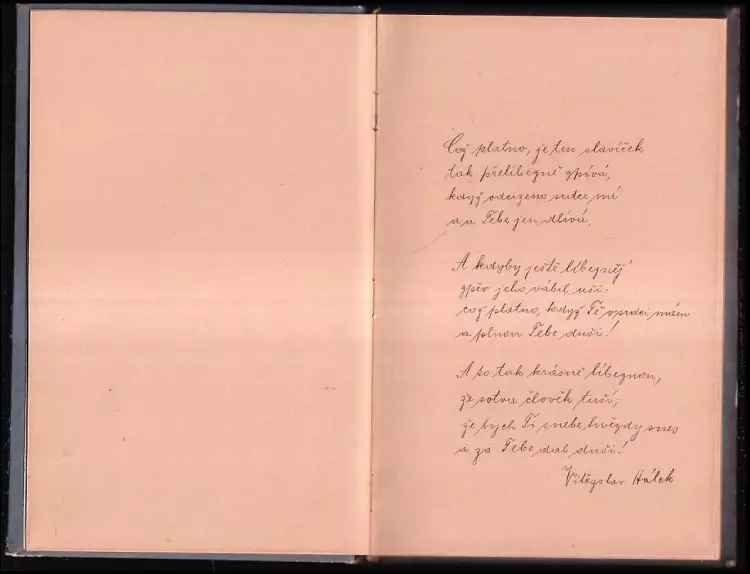 Což platno, že ten slavíček
tak přelíbezně zpívá,
když odcizeno srdce mé
a u Tebe jen dlívá.
A kdyby ještě líbeznějʼ
zpěv jeho vábil uši:
což platno, když Tě v srdci mám
a plnou Tebe duši!
A to tak krásně líbeznou,
že sotva člověk tuší;
že bych Ti s nebe hvězdy snes
a za Tebe dal duši!
Vítězslav Hálek